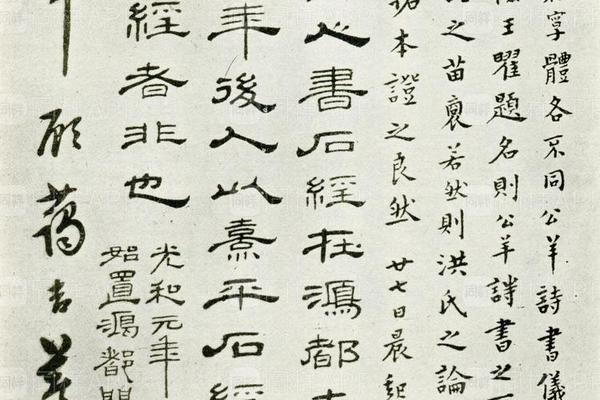 體各不同公羊詩書儀
王曜題名則公羊詩書之
之苗裔若然則洪氏之論
本證之良然 廿七日晨起
書石經在鴻都
年後人以熹平石經
經者非也
光和元年
始置鴻都門
顧藹吉